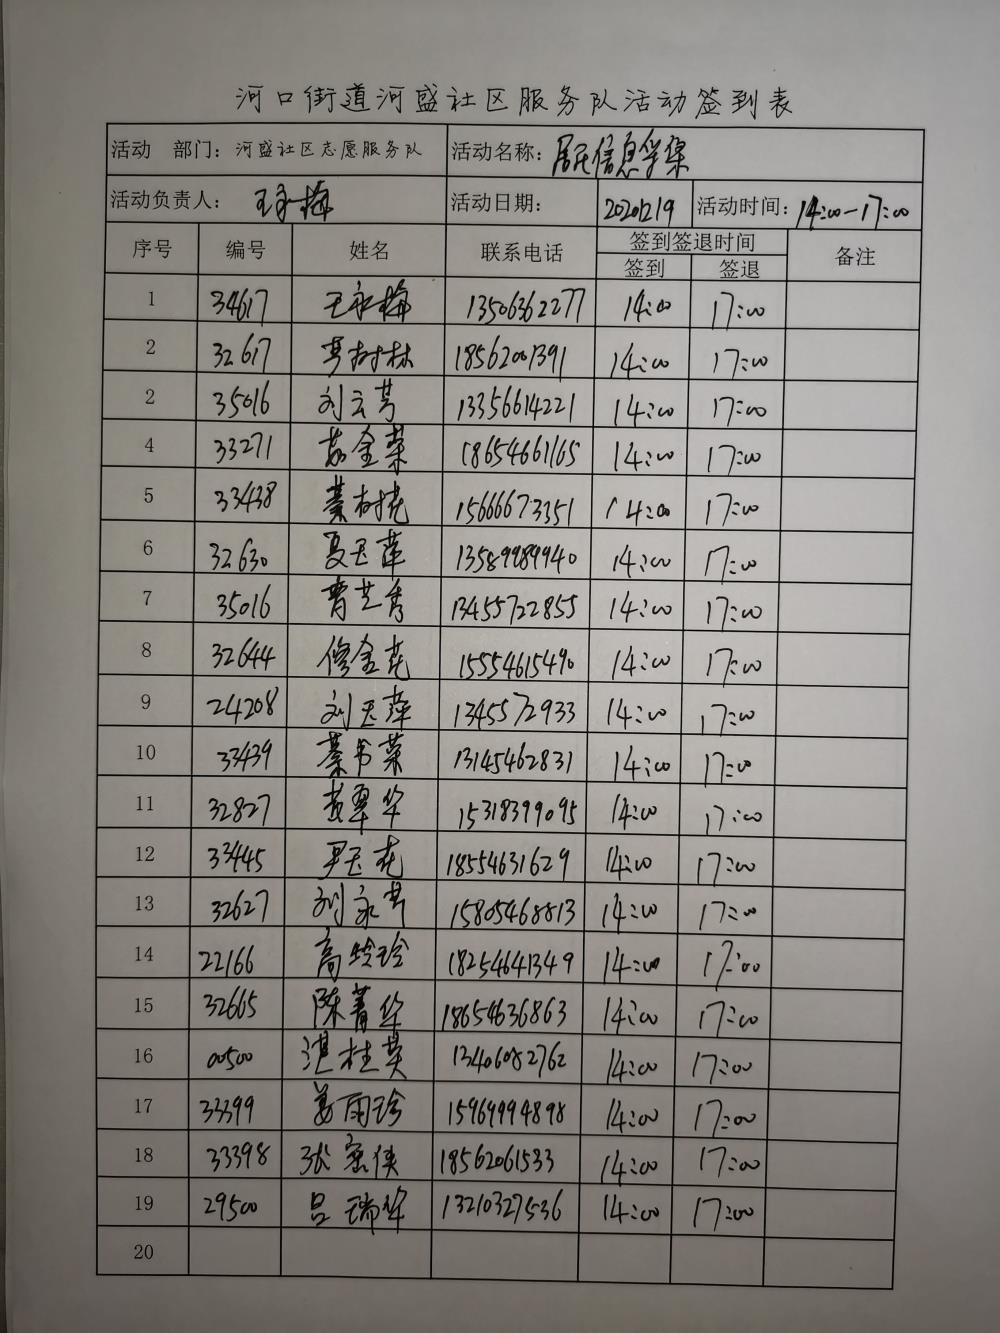 河口街道河盛社区服务队活动签到表
活动 部门：河盛社区志愿服务队 活动名称：居民信息采集
活动负责人：王永梅 活动日期： 20201219 活动时间：14:00-17:00
序号 编号 姓名 联系电话 签到签退时间 备注
签到 签退
1 34617 王永梅 13506362277 14:00 17:00
2 32617 树林 18562001391 14:00 17:00
2 35016 刘云芳 13356614221 14:00 17:00
4 33271 金荣 18654661165 14:00 17:00
5 33438 綦树花 15666673351 14:00 17:00
6 32630 夏玉萍 13589989940 14:00 17:00
7 35016 曹芝秀 13455722855 14:00 17:00
8 32644 修金花 15554615490 14:00 17:00
9 24208 刘玉萍 1345572933 14:00 17:00
10 33439 綦书菜 13145462831 14:00 17:00
11 32827 黄翠华 15318399095 14:00 17:00
12 33445 尹玉花 18554631629 14:00 17:00
13 32627 刘永芳 15805468813 14:00 17:00
14 22166 高玲玲 18254641349 14:00 17:00
15 32665 陈菁华 18654636863 14:00 17:00
16 00500 湛桂英 13406082762 14:00 17:00
17 33399 姜雨珍 15969994898 14:00 17:00
18 33398 张密侠 18562061533 14:00 17:00
19 29500 吕瑞华 13210327536 14:00 17:00
20